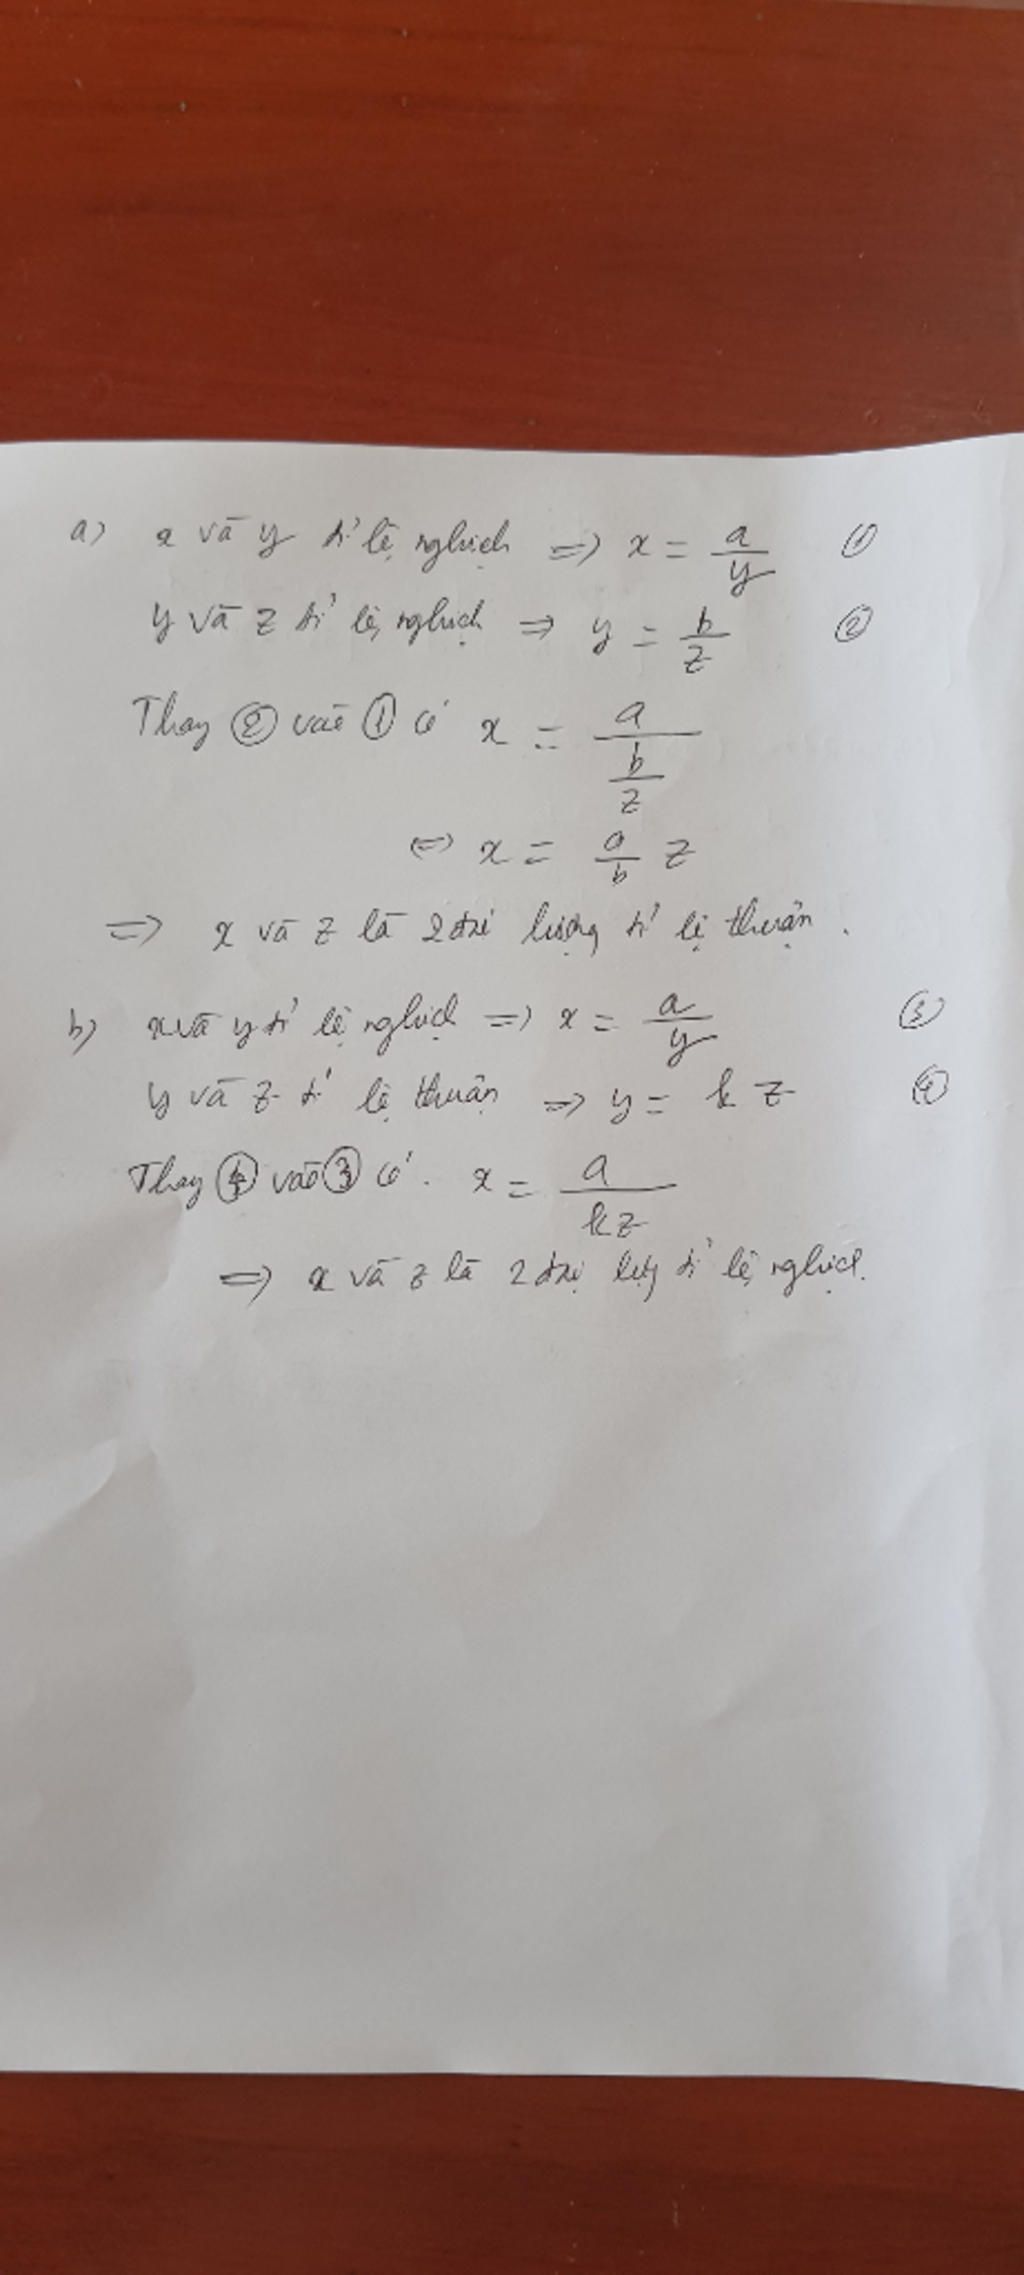 a) x và y tỉ lệ nghịch => x = a/y (1)
y và z tỉ lệ nghịch => y = b/z (2)
Thay (2) vào (1) có x = a/(b/z)
<=> x = a/b z
=> x và z là 2 đại lượng tỉ lệ thuận.
b) x và y tỉ lệ nghịch => x = a/y (3)
y và z tỉ lệ thuận => y = k z (4)
Thay (4) vào (3) có. x = a/kz
=> x và z là 2 đại lượng tỉ lệ nghịch.